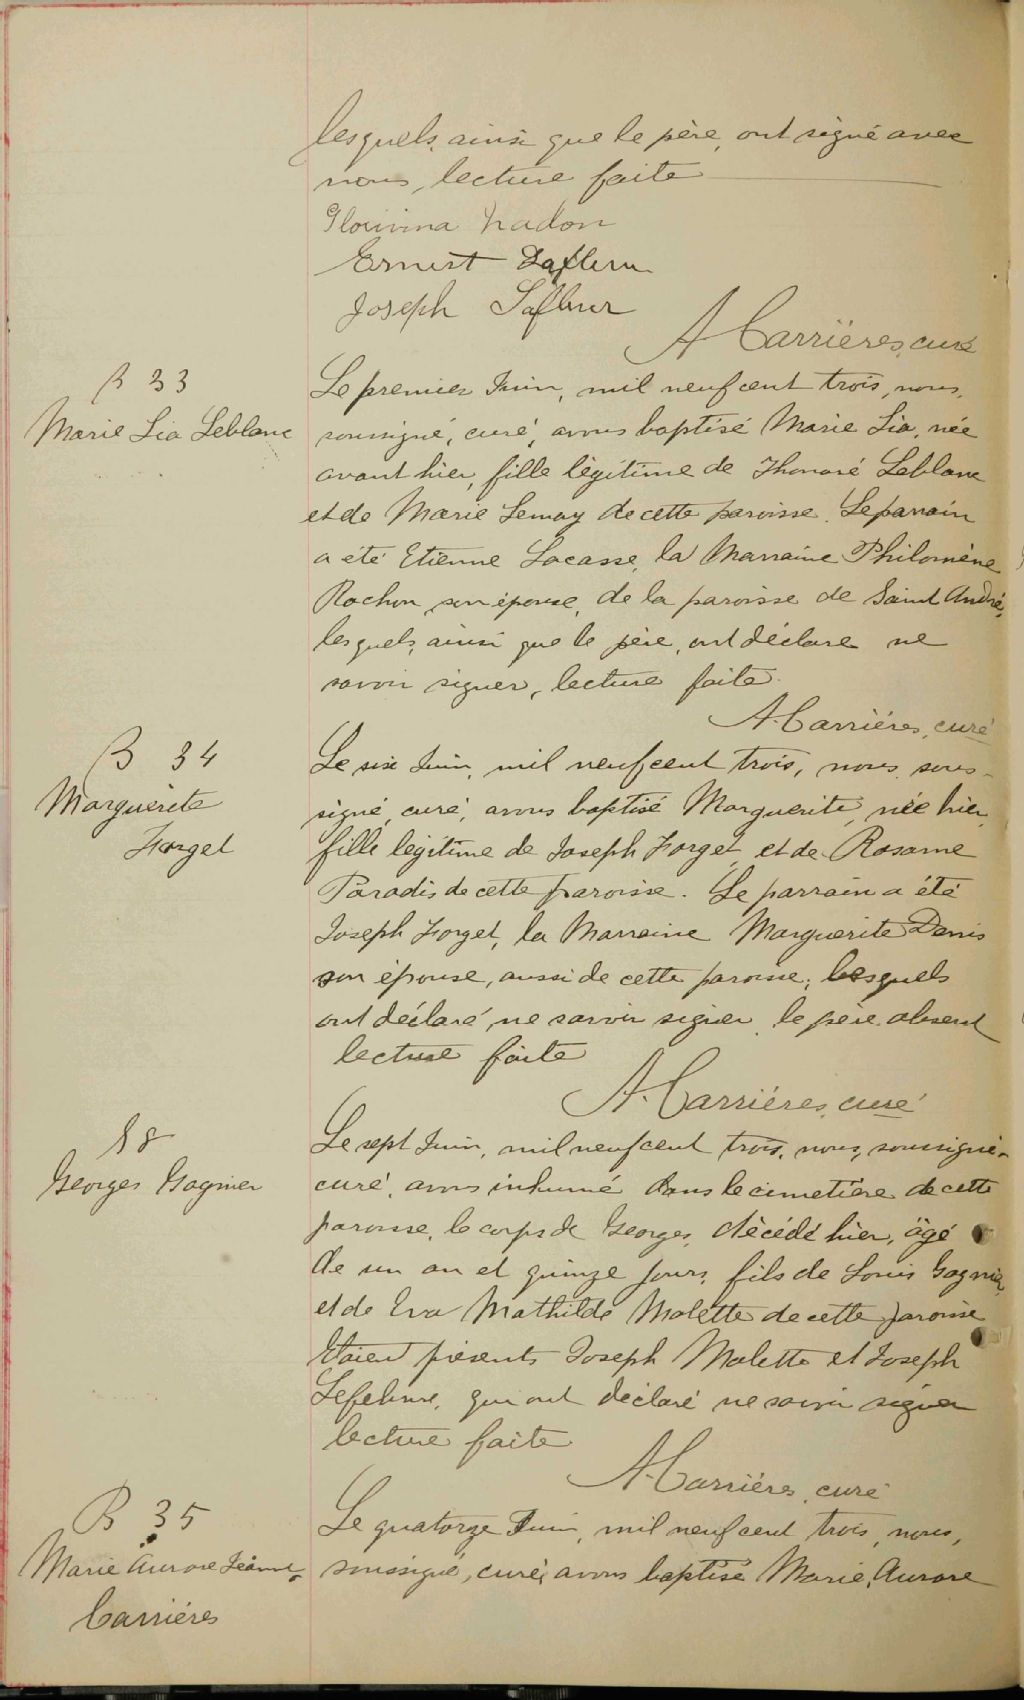 lesquels, ainsi que le père, ont signé avec
nous, lecture faite
Nadon
Ernest Lafleur
Joseph Lafleur
A Carrières, curé
B 33
Marie Lia Leblanc
Le premier Juin, mil neuf cent trois, nous,
soussigné, curé, avons baptisé Marie Lia, née
avant hier, fille légitime de Thonoré Leblanc
et de Marie Lemay de cette paroisse. Le parrain
a été Etienne Lacasse, la Marraine Philomène
Rochon son épouse, de la paroisse de Saint André,
lesquels, ainsi que le père, ont déclare ne
savoir signer, lecture faite.
A. Carrières, curé
B 34
Marguerite
Forget
Le six Juin, mil neuf cent trois, nous, sous-
signé, curé, avons baptisé Marguerite, née hier,
fille légitime de Joseph Forget, et de Rosanne
Paradis de cette paroisse. Le parrain a été
Joseph Forget, la Marraine Marguerite Denis
son épouse, aussi de cette paroisse, lesquels
ont déclaré ne savoir signer, le père absent
lecture faite
A. Carrières, curé
S 8
Georges Gagnier
Le sept Juin, mil neuf cent trois, nous, soussigné
curé, avons inhumé dans le cimetière de cette
paroisse, le corps de Georges, décédé hier, âgé
de un an et quinze jours, fils de Louis Gagnier,
et de Eva Mathilde Malette de cette paroisse
Etaient présents Joseph Malette et Joseph
Lefebvre, qui ont déclaré ne savoir signer
lecture faite
A. Carrières, curé
B 35
Marie Aurore Jeanne
Carrières
Le quatorze Juin, mil neuf cent trois, nous,
soussigné, curé, avons baptisé Marie, Aurore